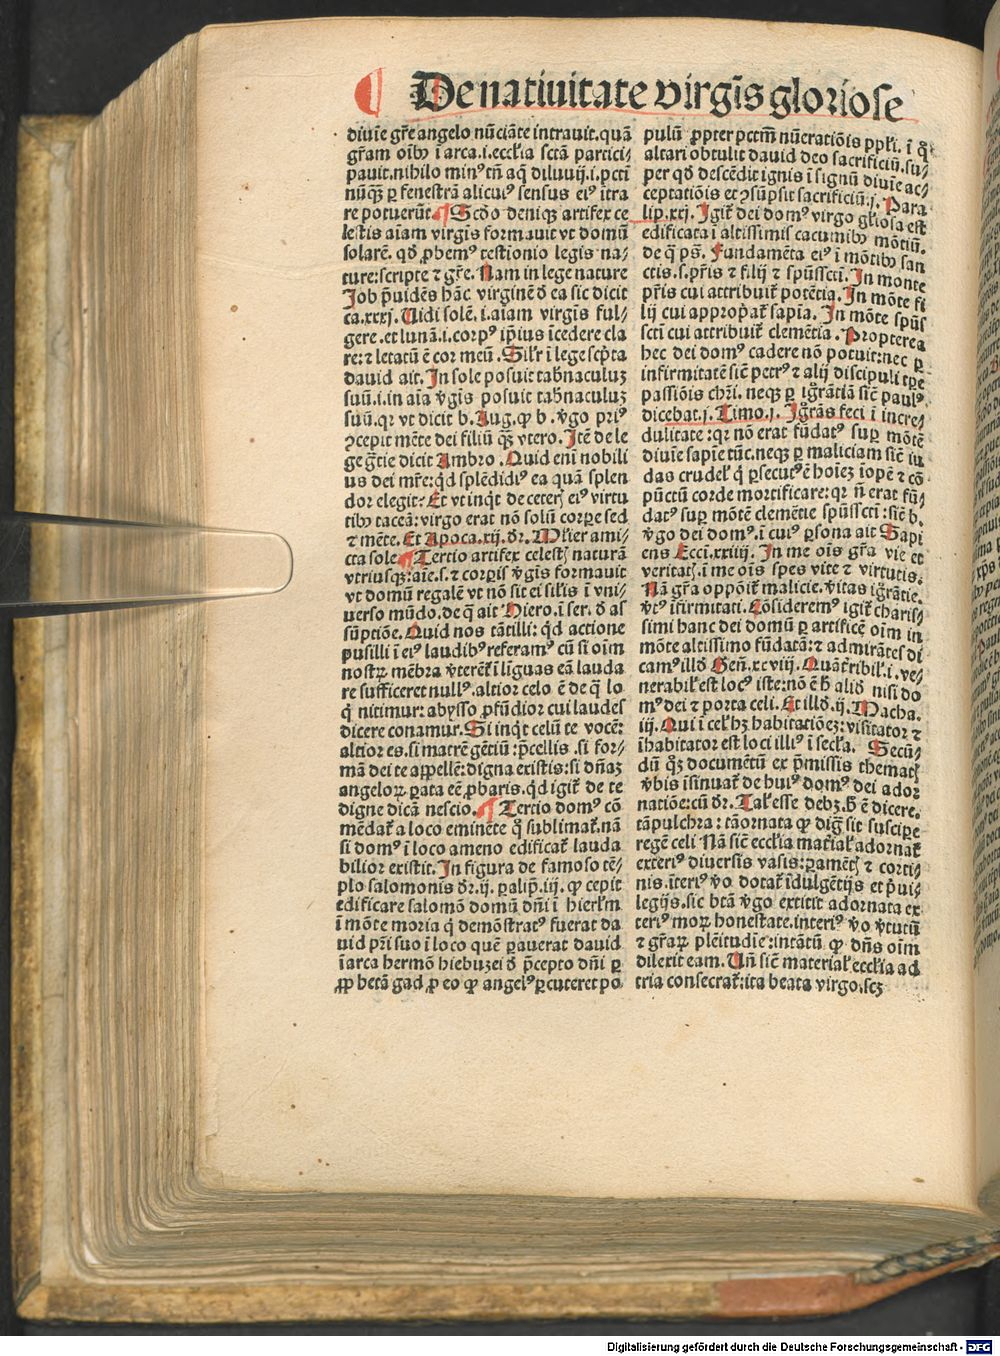 De natiuitate virgīs gloriose
diuīe gr̄e angelo nūciāte intrauit.quā
gr̄am oīb₉ ī arca.i.eccl̄ia sctā partici⸗
pauit.nihilo min⁹ tn̄ aq̄ diluuij.i.pcti
nūq̄ꝫ ꝑ fenestrā alicui⁹ sensus ei⁹ ītra
re potuerūt. Scd̄o deniqꝫ artifex ce
lestis aīam virgīs formauit vt domū
solarē. qd̄ ꝓbem⁹ testionio legis na⸗
ture:scripte ⁊ gr̄e. Nam in lege nature
Job p̄uidēs hāc virginē d̄ ea sic dicit
ca.xxxj. Uidi solē.i.aīam virgīs ful⸗
gere.et lunā.i.corp⁹ ip̄ius īcedere cla
re:⁊ letatū ē cor meū. Silr̄ ī lege scp̄ta
dauid ait. In sole posuit tab̄naculuꝫ
suū.i.in aīa v̄gīs posuit tab̄naculuꝫ
suū.qꝛ vt dicit b. Aug. ꝙ b. v̄go pri⁹
ꝯcepit mēte dei filiū q̄ꝫ vtero. Itē de le
ge gr̄tie dicit Ambro. Quid enī nobili
us dei mr̄e:qd̄ splēdidi⁹ ea quā splen
dor elegit: Et vt inqt̄ de ceteꝝ ei⁹ virtu
tib₉ taceā:virgo erat nō solū corꝑe sed
⁊ mēte. Et Apoca.xij. dr̄. Mr̄ier ami⸗
cta sole. Tertio artifex celestꝭ naturā
vtriusqꝫ:aīe.s.⁊ corꝑis v̄gīs formauit
vt domū regalē vt nō sit ei sīlis ī vni⸗
uerso mūdo. de q̄ ait Hiero.ī ser. d̄ as
sūptiōe. Quid nos tātilli: qd̄ actione
pusilli ī ei⁹ laudib⁹ referam⁹ cū si oīm
nostꝝ mēbra v̄terēt̄ ī līguas eā lauda
re sufficeret null⁹. altior celo ē de q̄ lo
q̄ nitimur: abysso ꝓfūdior cui laudes
dicere conamur. Si inqt̄ celū te vocē:
altior es. si matrē gētiū:p̄cellis. si for⸗
mā dei te appellē:digna existis:si dn̄aꝫ
angeloꝝ ꝑata eē ꝓbaris. qd̄ igit̄ de te
digne dicā nescio. Tertio dom⁹ cō
mēdat̄ a loco eminēte q̊ sublimat̄.nā
si dom⁹ ī loco ameno edificat̄ lauda
bilior existit. In figura de famoso tē⸗
plo salomonis dr̄.ij. ꝑalip̄.iij. ꝙ cepit
edificare salomō domū dn̄i ī hierl̄m
ī mōte moria q̄ demōstrat⁹ fuerat da
uid pr̄i suo ī loco quē ꝑauerat dauid
īarca hermō hiebuzei d̄ p̄cepto dn̄i ꝑ
ꝓphetā gad ꝓ eo ꝙ angel⁹ ꝑcuteret po
pulū ꝓpter pctm̄ nūeratiōis ppl̄i. ī q̊
altari obtulit dauid deo sacrificiū. su⸗
per qd̄ descēdit ignis ī signū diuīe ac⸗
ceptatiōis et ꝯsūpsit sacrificiū.j. Para
lip.xxj. Igit̄ dei dom⁹ virgo gl̄iosa est
edificata ī altissimis cacuminib₉ mōtiū.
de q̄ ps̄. Fundamēta ei⁹ ī mōtib₉ san
ctis.s.pr̄is ⁊ filij ⁊ spūsscti. In monte
pr̄is cui attribuit̄ potētia. In mōte fi
lij cui appropat̄ sapīa. In mōte spūs
scti cui attribuit̄ clemētia. Propterea
hec dei dom⁹ cadere nō potuit:nec ꝑ
infirmitatē sicē petr⁹ ⁊ alij discipuli tꝑe
passiōis chr̄i. neqꝫ ꝑ īgr̄ātiā sicē paul⁹
dicebat.j. Timo.j. Igr̄ās feci ī incre⸗
dulitate:qꝛ nō erat fūdat⁹ suꝑ mōtē
diuīe sapīe tūc.neqꝫ ꝑ maliciam sicē iu
das crudel̄ q̄ ꝑsecut⁹ ē hoīeꝫ īopē ⁊ cō
pūctū corde mortificare:qꝛ n̄ erat fū⸗
dat⁹ suꝑ mōtē clemētie spūsscti:sicē b.
v̄go dei dom⁹.ī cui⁹ ꝑsona ait Sapi
ens Ecci.xxiiij. In me oīs gr̄a vie et
veritatꝭ.ī me oīs spes vite ⁊ virtutis.
Nā gr̄a oppōit̄ malicie.v̄itas igr̄ātie.
v̄t⁹ īfirmitati. Cōsiderem⁹ igit̄ charis⸗
simi hanc dei domū ꝑ artificē oīm in
mōte altissimo fūdatā:⁊ admirātes di
cam⁹ illd̄ Gen̄.xcviij. Quāt̄ribil̄.i.ve⸗
nerabil̄ est loc⁹ iste:nō ē h̄ aliō nisi do
m⁹ dei ⁊ porta celi. Et illd̄.ij. Macha.
iij. Qui ī cel̄ hꝫ habitatiōeꝫ:visitator ⁊
īhabitator est loci illi⁹ ī secl̄a. Secū⸗
dū q̊ꝫ documētū ex p̄missis thematꝭ
v̄bis īsinuat̄ de hui⁹ dom⁹ dei ador
natiōe:cū dr̄. Tal̄ esse debꝫ.h̄ ē dicere.
tāpulchra:tāornata ꝙ diḡ sit susciꝑe
regē celi Nā sicē eccl̄ia mat̄ial̄ adornat̄
exteri⁹ diuersis vasis:ꝑamētꝭ ⁊ corti⸗
nis.īteri⁹ v̊o dotat̄ īdulgētijs et p̄ui⸗
legijs.sic btā v̄go extitit adornata ex
teri⁹ moꝝ honestate.interi⁹ v̊o v̄tutū
⁊ gr̄aꝝ plēitudīe:intātū ꝙ dn̄s oīm
dilexit eam. Un̄ sicē material̄ eccl̄ia ad
tria consecrat̄:ita beata virgo.scꝫ
Digitalisierung gefördert durch die Deutsche Forschungsgemeinschaft - DFG